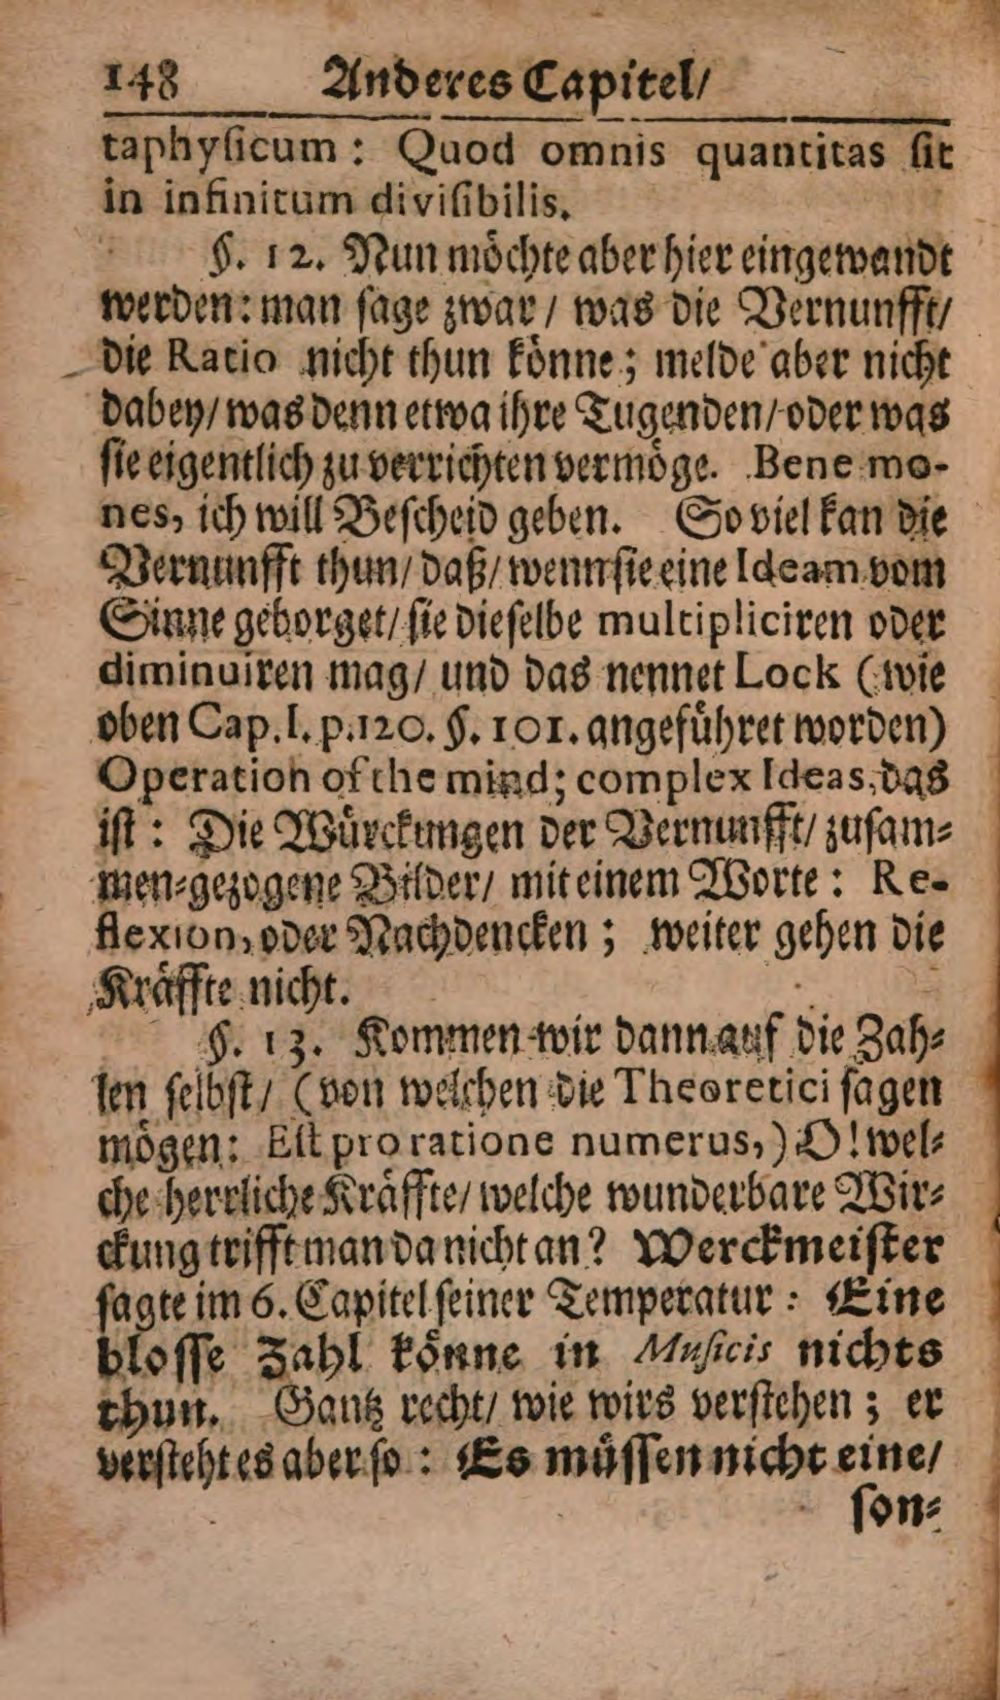 148 Anderes Capitel/
taphyſicum: Quod omnis quantitas ſit
in infinitum diviſibilis.
§. 12. Nun möchte aber hier eingewandt
werden: man ſage zwar / was die Vernunfft/
die Ratio nicht thun könne; melde aber nicht
dabey/ was denn etwa ihre Tugenden/ oder was
ſie eigentlich zu verrichten vermöge. Bene mo-
nes, ich will Beſcheid geben. So viel kan die
Vernunfft thun/ daß/ wenn ſie eine Ideam vom
Sinne geborget/ ſie dieſelbe multipliciren oder
diminuiren mag/ und das nennet Lock (wie
oben Cap. I. p. 120. §. 101. angeführet worden)
Operation of the mind; complex Ideas, das
iſt: Die Würckungen der Vernunfft/ zuſam-
men-gezogene Bilder/ mit einem Worte: Re-
flexion, oder Nachdencken; weiter gehen die
Kräffte nicht.
§. 13. Kommen wir dann auf die Zah-
len ſelbſt/ (von welchen die Theoretici ſagen
mögen: Eſt pro ratione numerus,) O! wel-
che herrliche Kräffte/ welche wunderbare Wir-
ckung trifft man da nicht an? Werckmeiſter
ſagte im 6. Capitel ſeiner Temperatur: Eine
bloſſe Zahl könne in Muſicis nichts
thun. Gantz recht/ wie wirs verſtehen; er
verſteht es aber ſo: Es müſſen nicht eine/
ſon-